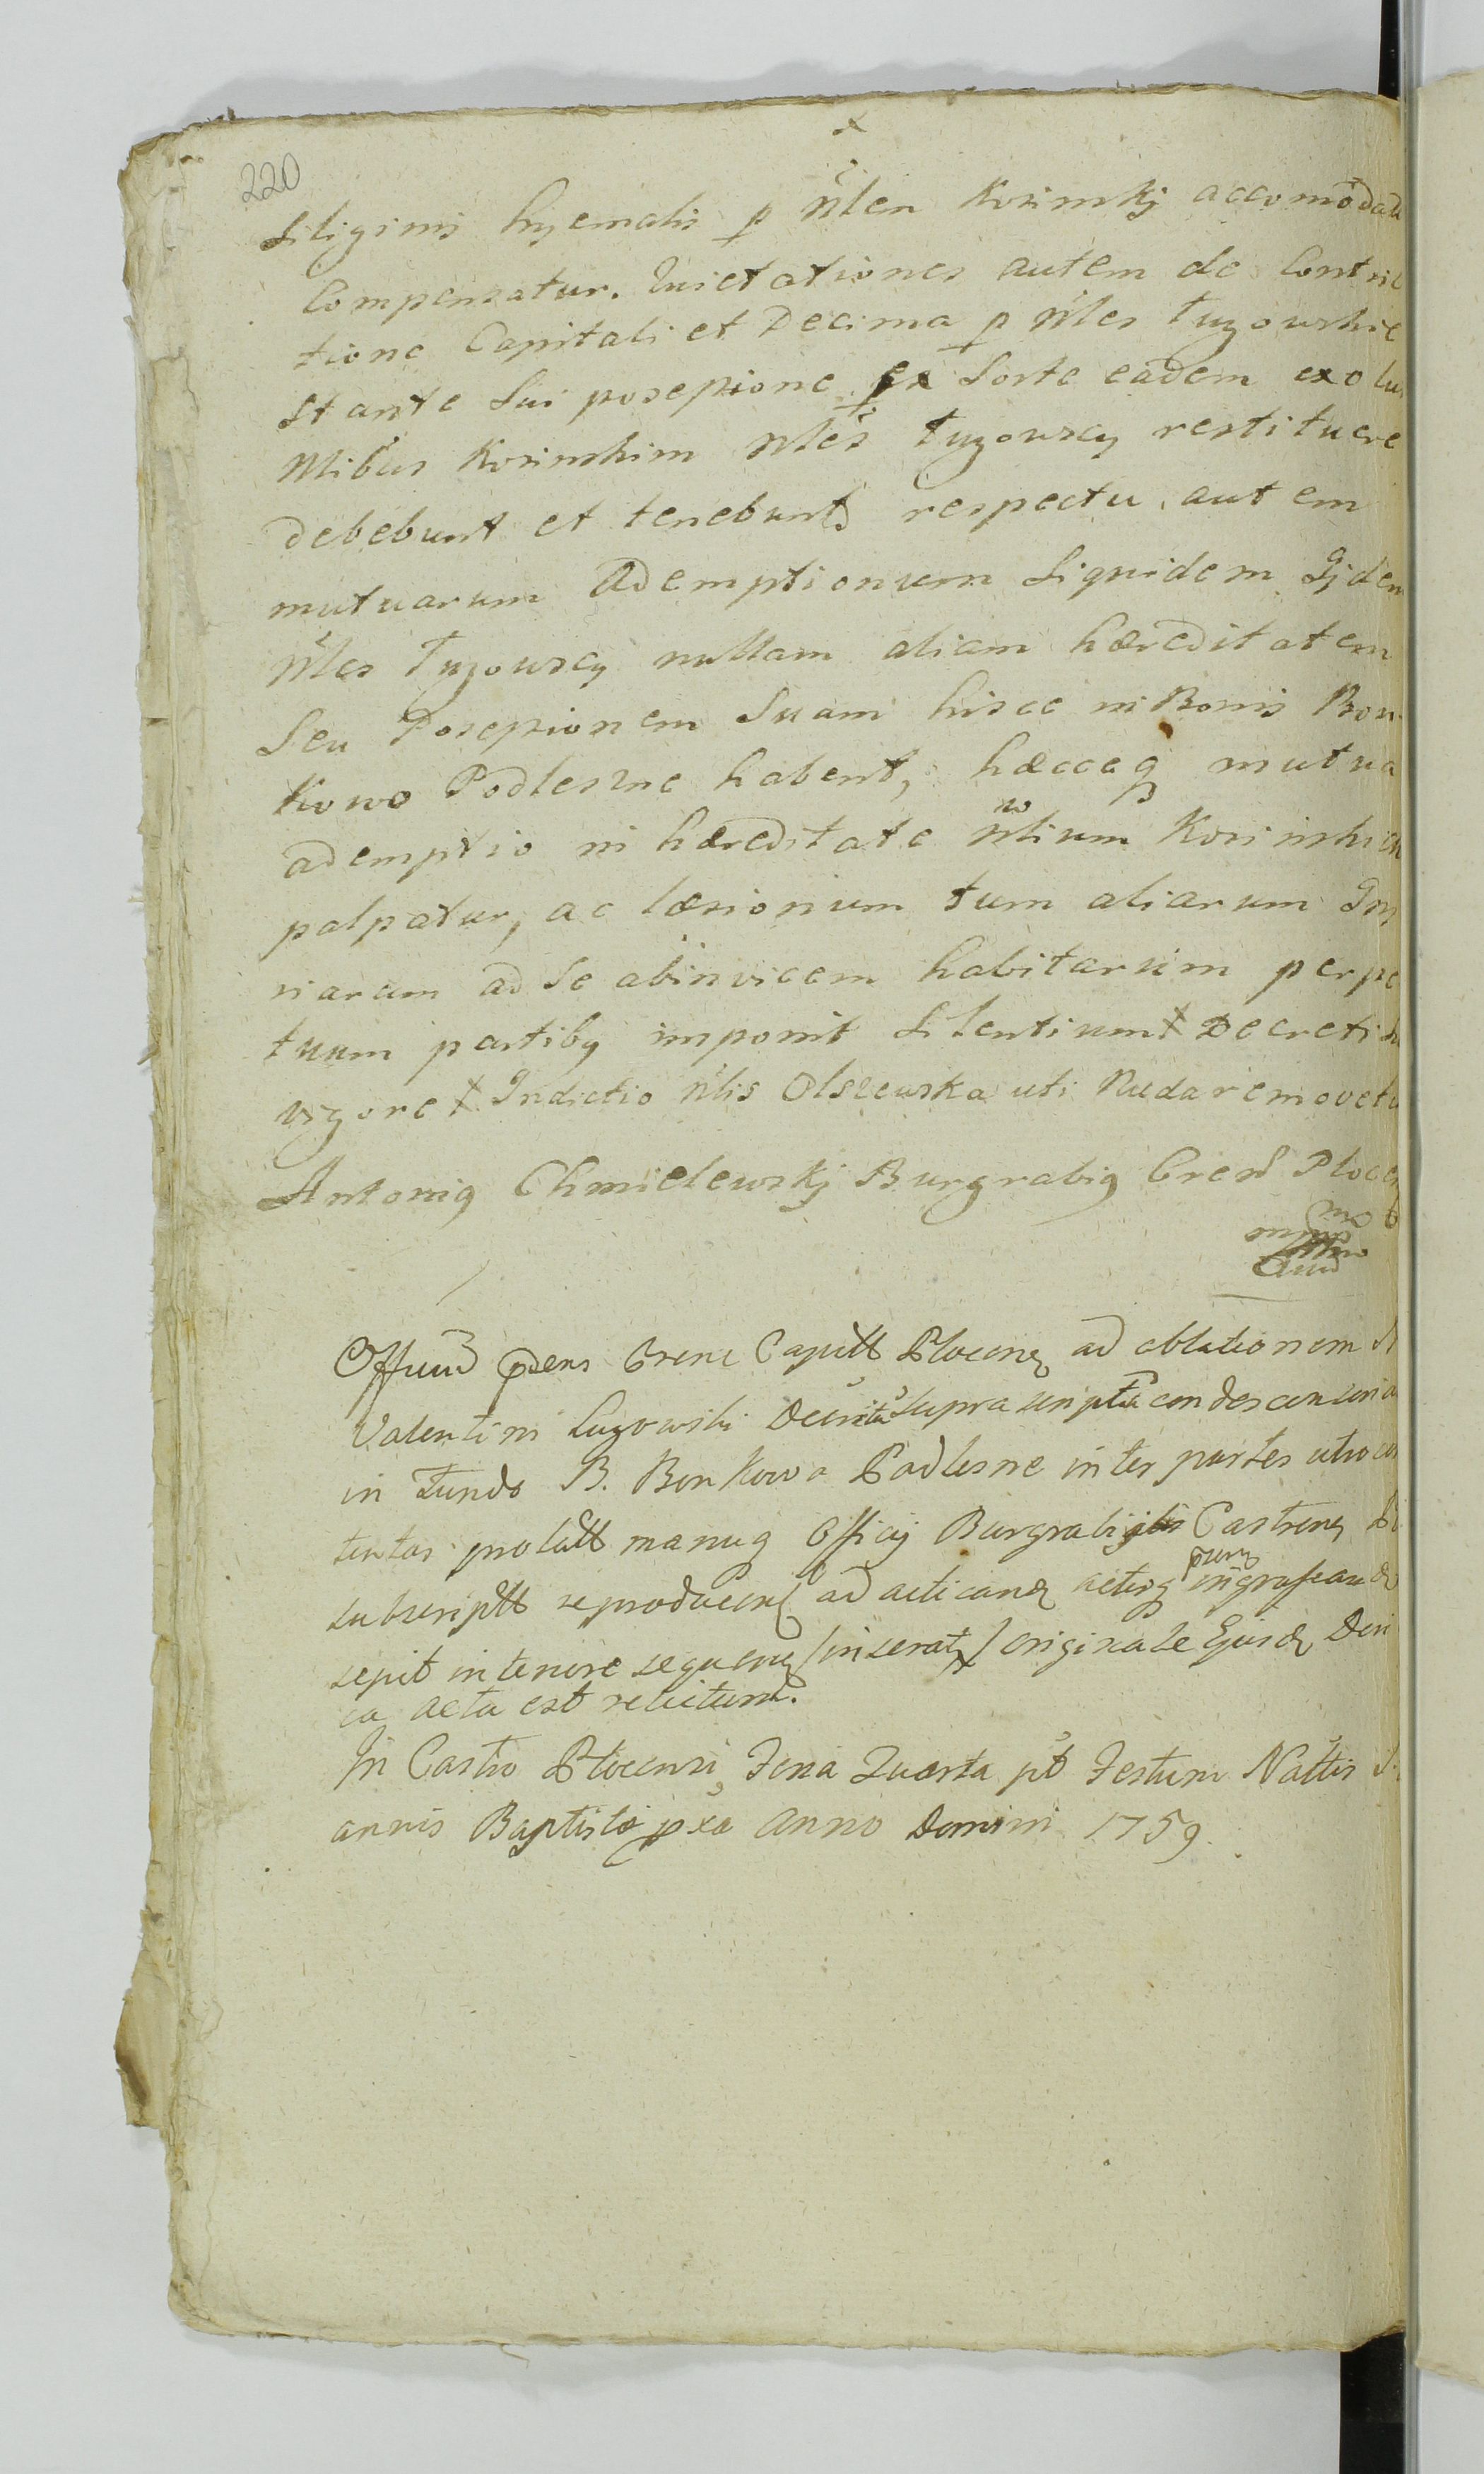 220
Siliginis hyemalis p Nlen Kosinskj accomodata
Compensatur. Quietationes autem de Contrib
tione Capitali et Decima p Nles Tuzowskie
stante Sui possessione ex Sorte eadem exolu
Nlibus Kosinskim Nles Tuzowscy restituere
debebunt et tenebunt, respectu autem
mutuarum Ademptionum Siquidem Ijdem
Nles Tuzowscy nullam aliam hæreditatem
Seu Possessionem Suam hisce in Bonis Bon
kowo Podlesne habent, hæcceq mutua
ademptio in hæreditate Nlium Kosinskich
palpatur, ac læsionum tum aliarum Inj
riarum ad Se abinvicem habitarum perpe
tuum partibq imponit Silentium Decreti Su
vigore Indictio Nlis Olszewska uti Nuda removetu
Antoniq Chmielewskj Burgrabiq Cren Plocen
Offium pdens Crene Capitt Plocenq ad oblationem
Valentini Luzowski Decreta Supra scripta condescensoria
in Fundo B. Bonkowo Podlesne inter partes
tentas prolatt manuq Officij Burgrabijlis Castrenq
subscriptt reproducens ad acticand actisq ingrossand
sepit in tenore sequenq /inseratq/ originale Ejusdq
ca acta est relictum.
In Castro Plocensi Feria Quarta pt Festum Nattis S.
annis Baptistæ pxa Anno Domini 1759.